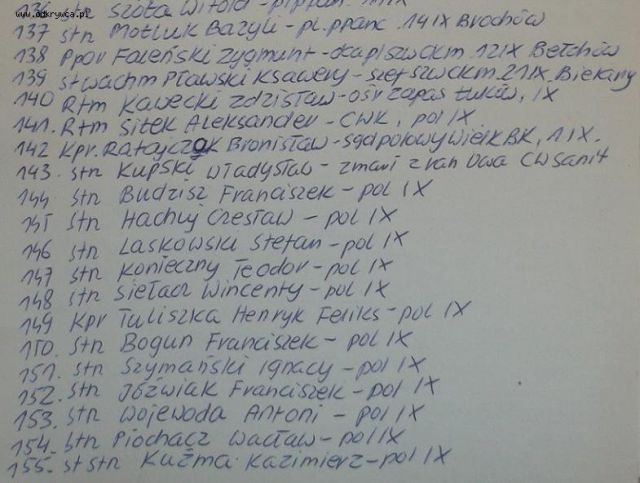 www.odkrywca.pl
136 str Szota Witold - pl.
137 str Motluk Bazyli - pl. ppanc. 14 IX Brochów
138 Ppor Foleński Zygmunt - dca pl szw ckm. 12 IX Bełchów
139 st wachm Pławski Ksawery - szef szw ckm. 21 IX. Bielany
140 Rtm Kawecki Zdzisław - ośr zapas Łuków, IX
141. Rtm Sitek Aleksander - CWK, pol IX
142 kpr. Ratajczak Bronisław - sąd polowy Wielk BK, 1 IX.
143. str Kupski Władysław - zmarł z ran CW Sanit
144 str Budzisz Franciszek - pol IX
145 str Hachuj Czesław - pol IX
146 str Laskowski Stefan - pol IX
147 str Konieczny Teodor - pol IX
148 str Sieładz Wincenty - pol IX
149 Kpr Tuliszka Henryk Feliks - pol IX
150. Str Bogun Franciszek - pol IX
151. str Szymański Ignacy - pol IX
152. str Jóźwiak Franciszek - pol IX
153. str Wojewoda Antoni - pol IX
154. str Piochacz Wacław - pol IX
155. st str Kuźma Kazimierz - pol IX